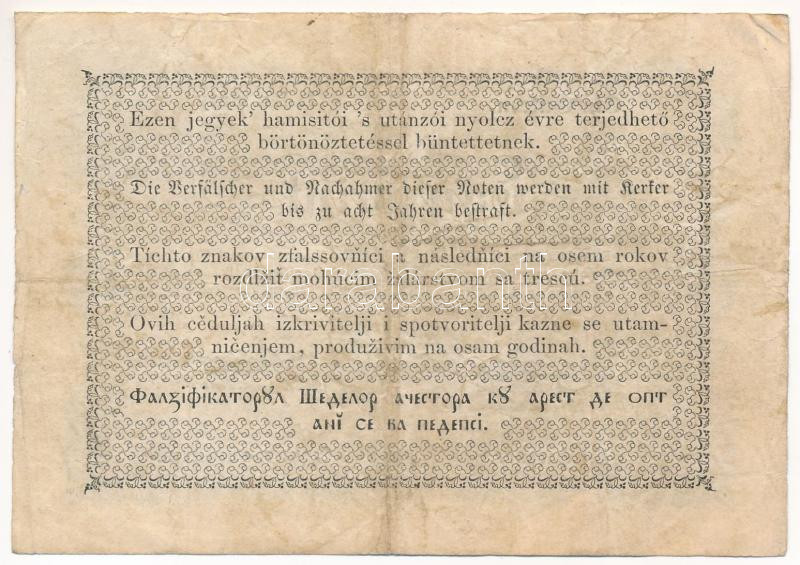 Ezen jegyek' hamisitói 's utánzói nyolcz évre terjedhető
börtönöztetéssel büntettetnek.
Die Verfälscher und Nachahmer dieser Noten werden mit Kerker
bis zu acht Jahren bestraft.
Tíchto znakov zfalssovňíci a následňíci na osem rokov
rozdlžiť mohúcim žalárstvom sa trescú.
Ovih cěduljah izkrivitelji i spotvoritelji kazne se utam-
ničenjem, produživim na osam godinah.
Фалꙁіфікаторꙋл Шеделор ачестора кꙋ арест де опт
анї се ва педепсі.
darabanth